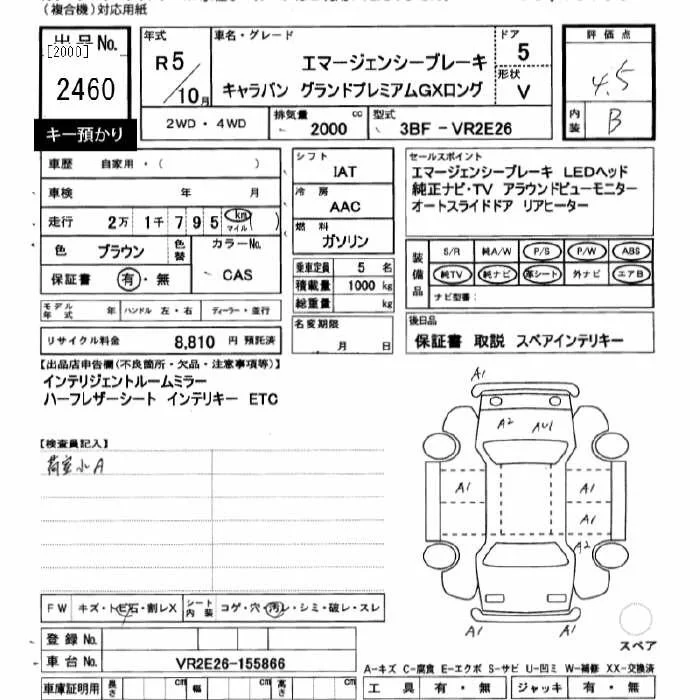 (複合機)対応用紙
出品No.
[2000]
2460
キー預かり
年式
R5/10月
車名・グレード
エマージェンシーブレーキ
キャラバン グランドプレミアムGXロング
ドア
5
形状
V
評価点
4.5
内装
B
2WD・4WD
排気量
2000 cc
型式
3BF-VR2E26
車歴 自家用・( )
車検 年 月
走行 2万 1千 7 9 5 km マイル ( )
色 ブラウン
色替
カラーNo.
CAS
保証書 有・無
モデル年式 年 ハンドル 左・右 ディーラー・並行
リサイクル料金 8,810 円 預託済
シフト
IAT
冷房
AAC
燃料
ガソリン
乗車定員 5 名
積載量 1000 kg
総重量 kg
名変期限
月 日
セールスポイント
エマージェンシーブレーキ LEDヘッド
純正ナビ・TV アラウンドビューモニター
オートスライドドア リアヒーター
装備品
S/R 純A/W P/S P/W ABS
純TV 純ナビ 革シート 外ナビ エアB
ナビ型番:
後日品
保証書 取説 スペアインテリキー
【出品店申告欄(不良箇所・欠品・注意事項等)】
インテリジェントルームミラー
ハーフレザーシート インテリキー ETC
【検査員記入】
荷室小A
A1
A2 AU1
A1 A1
A1
A2
A1
スペア
FW キズ・トビ石・割レX
シート内装 コゲ・穴・汚レ・シミ・破レ・スレ
登録No.
車台No. VR2E26-155866
車庫証明用 長さ cm 幅 cm 高さ cm
A-キズ C-腐食 E-エクボ S-サビ U-凹ミ W-補修 XX-交換済
工具 有・無 ジャッキ 有・無